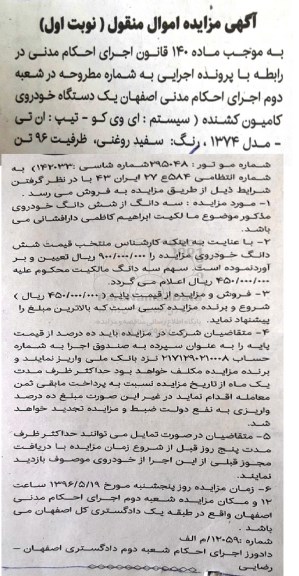 آگهی مزایده اموال منقول ( نوبت اول)
به موجب ماده ۱۴۰ قانون اجرای احکام مدنی در
رابطه با پرونده اجرایی به شماره مطروحه در شعبه
دوم اجرای احکام مدنی اصفهان یک دستگاه خودروی
کامیون کشنده ( سیستم : ای وی کو - تیپ : ان تی
- مدل ۱۳۷۴ ، رنگ: سفید روغنی، ظرفیت ۹۶ تن
شماره مو تور : ۲۹۵۰۴۸شماره شاسی :۱۴۲۰۳۳) به
شماره انتظامی ۵۸۴ع ۲۷ ایران ۴۳ با در نظر گرفتن
شرایط ذیل از طریق مزایده به فروش می رسد .
۱- مورد مزایده : سه دانگ از شش دانگ خودروی
مذکور موضوع ما لکیت ابراهیم کاظمی دارافشانی می
باشد.
۲- با عنایت به اینکه کارشناس منتخب قیمت شش
دانگ خودروی مزایده را ۹۰۰/۰۰۰/۰۰۰ ریال تعیین و بر
آوردنموده است. سهم سه دانگ مالکیت محکوم علیه
۴۵۰/۰۰۰/۰۰۰ ریال اعلام می گردد.
۳- فروش و مزایده از قیمت پایه ( ۴۵۰/۰۰۰/۰۰۰ ریال )
شروع و برنده مزایده کسی است که بالاترین مبلغ را
پیشنهاد نماید.
۴- متقاضیان شرکت در مزایده باید ده درصد از قیمت
پایه را به عنوان سپرده به صندوق اجرا به شماره
حساب ۲۱۷۱۲۹۰۲۱۰۰۰۸ نزد بانک ملی واریز نمایند و
برنده مزایده مکلف خواهد بود حداکثر ظرف مدت
یک ماه از تاریخ مزایده نسبت به پرداخت مابقی ثمن
معامله اقدام نماید در غیر این صورت مبلغ ده درصد
واریزی به نفع دولت ضبط و مزایده تجدید خواهد
شد.
۵- متقاضیان درصورت تمایل می توانند حداکثر ظرف
مدت پنج روز قبل از شروع زمان مزایده با دریافت
مجوز قبلی از این اجرا از خودروی موصوف بازدید
نمایند.
۶- زمان مزایده روز پنجشنبه مورخ ۱۳۹۶/۵/۱۹ ساعت
۱۲ و مکان مزایده شعبه دوم اجرای احکام مدنی
اصفهان واقع در طبقه یک دادگستری کل اصفهان می
باشد .
شماره :۱۲۰۵۹/م الف
دادورز اجرای احکام شعبه دوم دادگستری اصفهان -
رضایی